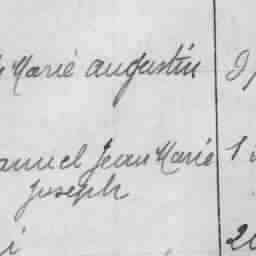 Marie Augustin
anuel Jean Marie 1
Joseph
i 20